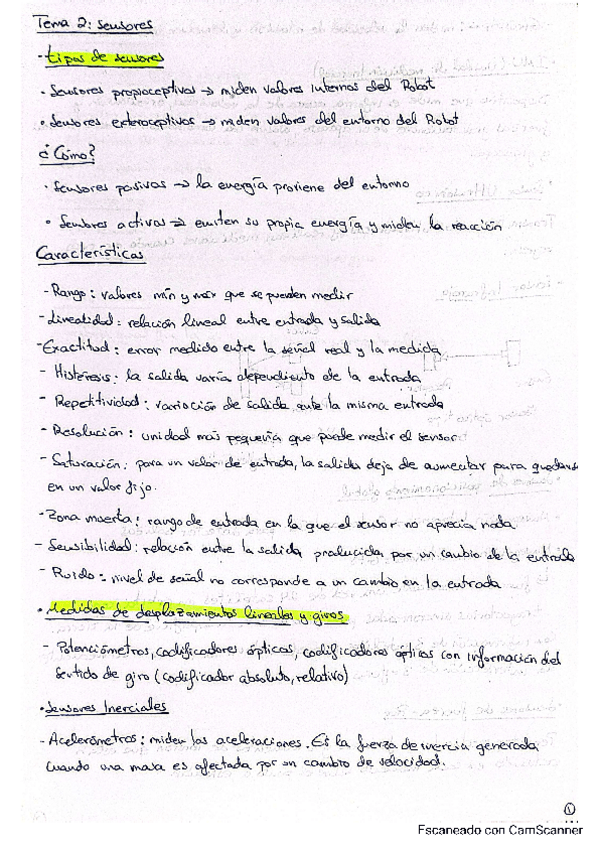 Tema 2: sensores
- tipos de sensores
• Sensores propioceptivos → miden valores internos del Robot
• Sensores exteroceptivos → miden valores del entorno del Robot
¿Cómo?
• Sensores pasivos → la energía proviene del entorno
• Sensores activas → emiten su propia energía y miden la reacción
Características
- Rango: valores mín y máx que se pueden medir
- Linealidad: relación lineal entre entrada y salida
- Exactitud: error medido entre la señal real y la medida
- Histéresis: la salida varía dependiento de la entrada
- Repetitividad: variación de salida ante la misma entrada
- Resolución: unidad más pequeña que puede medir el sensor
- Saturación: para un valor de entrada, la salida deja de aumentar para quedarse
en un valor fijo.
- Zona muerta: rango de entrada en la que el sensor no aprecia nada
- Sensibilidad: relación entre la salida producida por un cambio de la entrada
- Ruido: nivel de señal no corresponde a un cambio en la entrada
• Medidas de desplazamientos lineales y giros
- Potenciómetros, codificadores ópticos, codificadores ópticos con información del
sentido de giro (codificador absoluto, relativo)
• Sensores Inerciales
- Acelerómetros: miden las aceleraciones. Es la fuerza de inercia generada
cuando una masa es afectada por un cambio de velocidad.
1
Escaneado con CamScanner